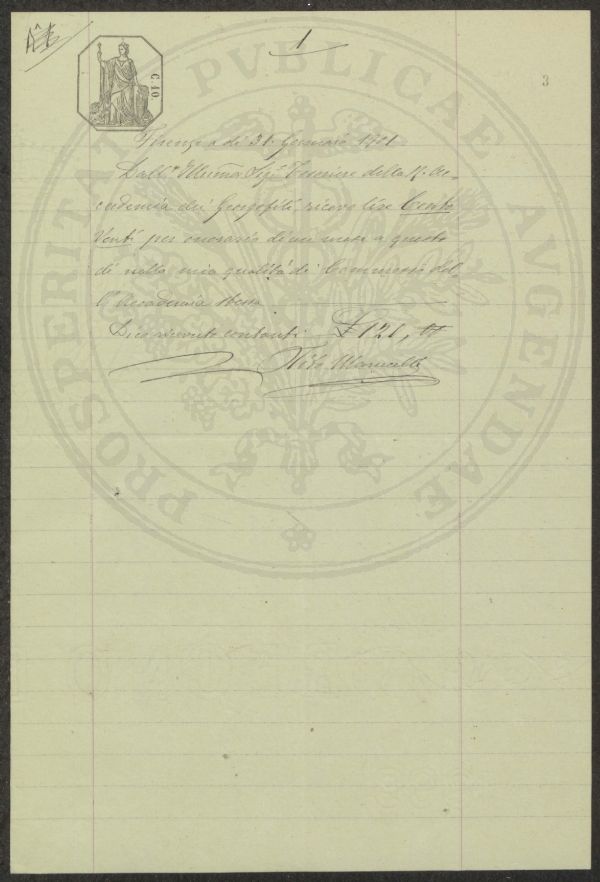 1
3
C. 10
PROSPERITATI PVBLICAE AVGENDAE
Firenze a dì 31. Gennaio 1901
Dall' Illmo Sigr Tesoriere della R. Ac-
cademia dei Georgofili ricevo lire Cento
Venti per onorario di un mese a questo
dì nella mia qualità di Commesso del-
l' Accademia stessa
Dico ricevute contanti £ 120,